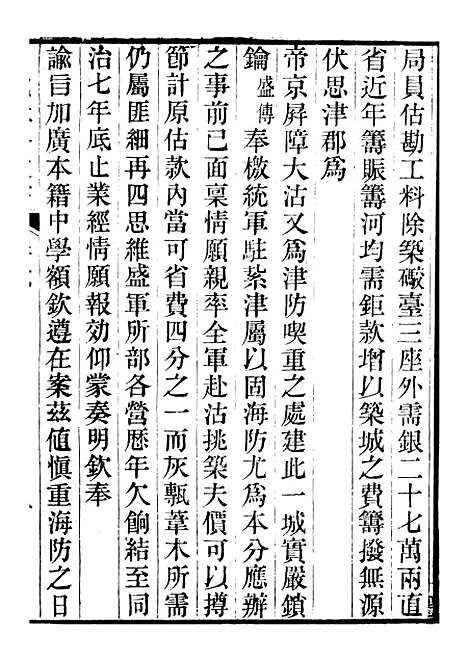 局員估勘工料除築礮臺三座外需銀二十七萬兩直
省近年籌賑籌河均需鉅款增以築城之費籌撥無源
伏思津郡為
帝京屛障大沽又為津防喫重之處建此一城實嚴鎖
鑰盛傳奉檄統軍駐紮津屬以固海防尤為本分應辦
之事前已面稟情願親率全軍赴沽挑築夫價可以撙
節計原估款內當可省費四分之一而灰甎葦木所需
仍屬匪細再四思維盛軍所部各營歷年欠餉結至同
治七年底止業經情願報効仰蒙奏明欽奉
諭旨加廣本籍中學額欽遵在案茲値愼重海防之日